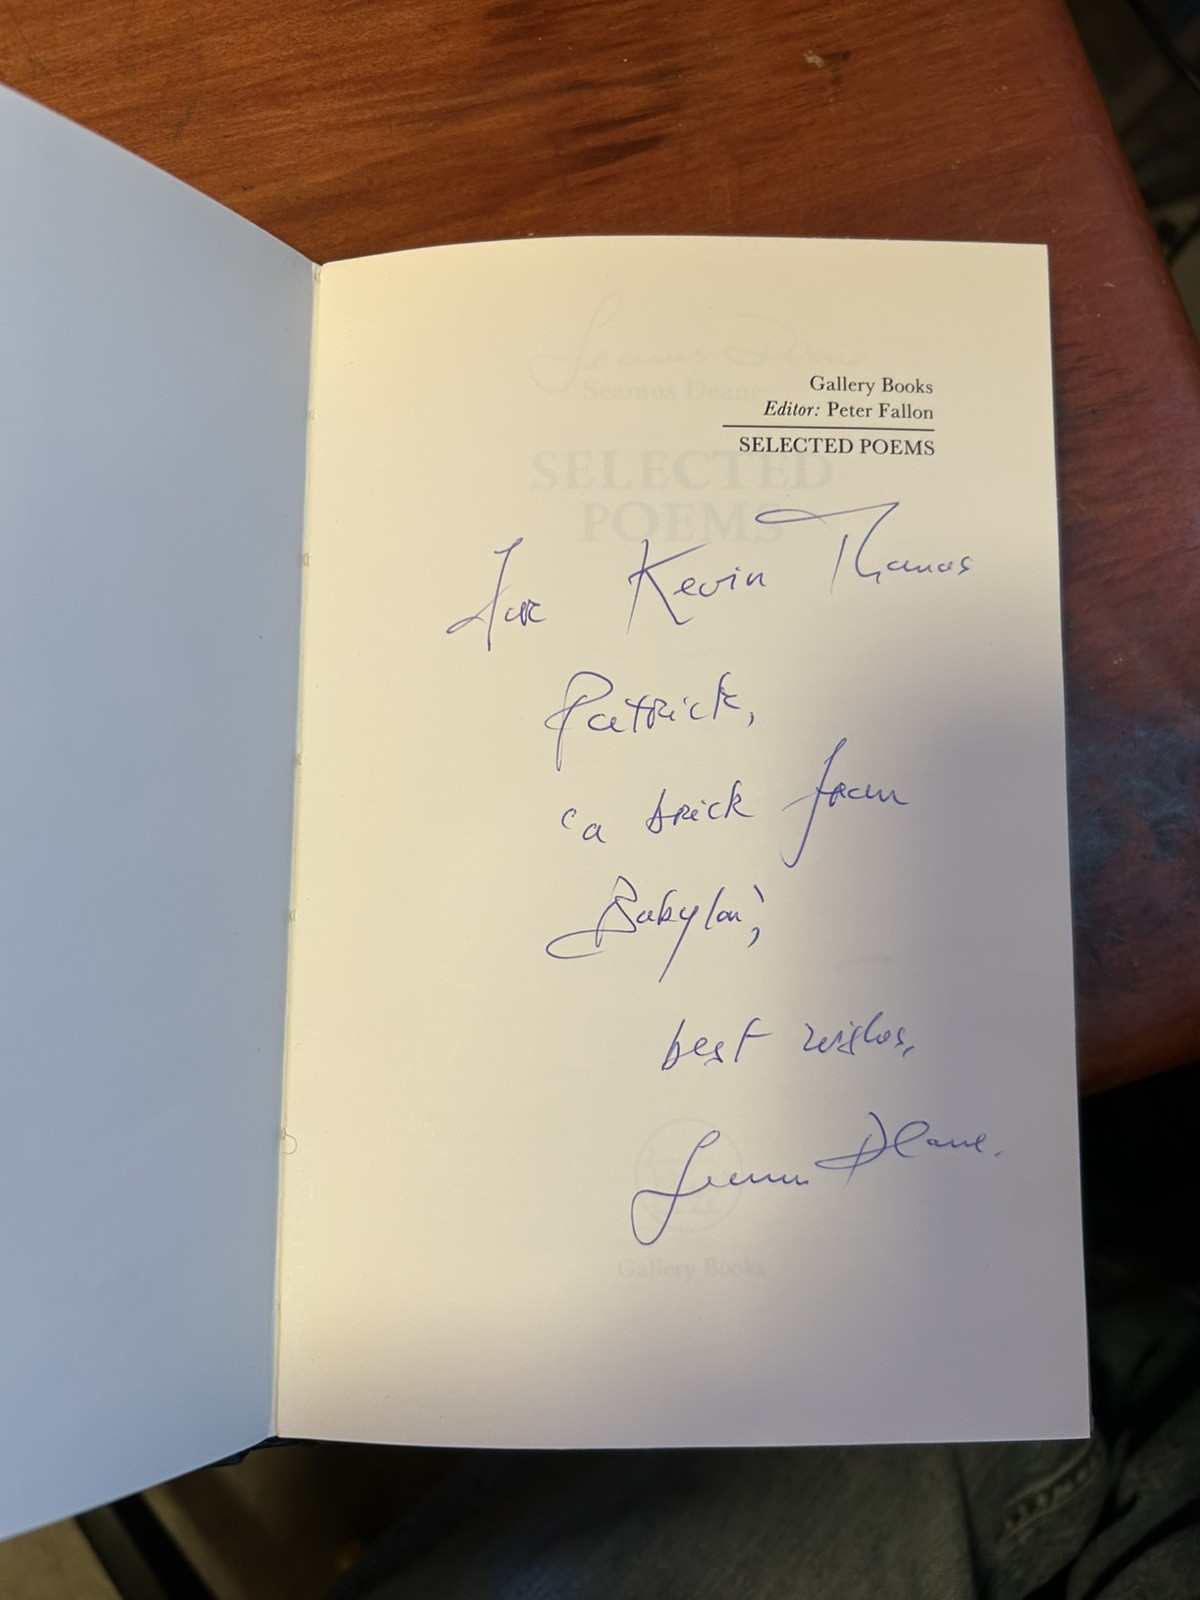 Seamus Deane
Seamus Deane
Gallery Books
Editor: Peter Fallon
SELECTED POEMS
SELECTED
POEMS
For Kevin Thomas
Patrick,
‘a brick from
Babylon’,
best wishes,
Seamus Deane.
Gallery Books